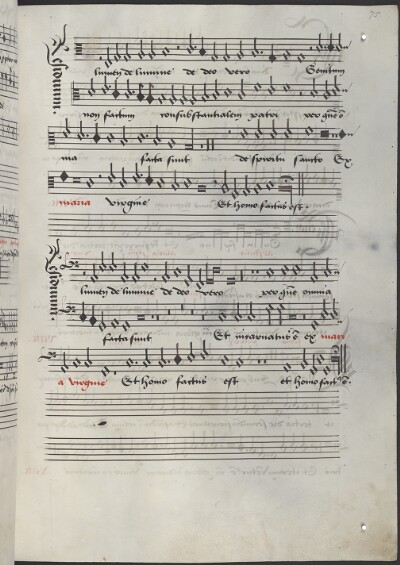 lumen de lumine de deo vero Genitum
non factum consubstantialem patri per quē ō
ma facta sunt de spiritu sancto Ex
maria virgine Et homo factus est.
lumen de lumine de deo vero per quē omnia
facta sunt Et incarnatus ē ex mari
a virgine Et homo factus est et homo fact9 ē.